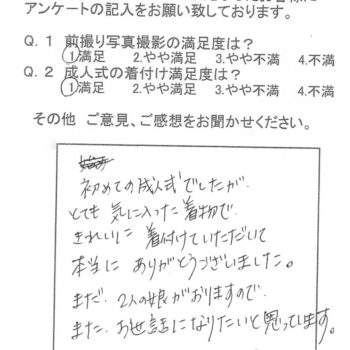 アンケートの記入をお願い致しております。
Q.1 前撮り写真撮影の満足度は?
1.満足 2.やや満足 3.やや不満 4.不満
Q.2 成人式の着付け満足度は?
1.満足 2.やや満足 3.やや不満 4.不満
その他 ご意見、ご感想をお聞かせください。
初めての成人式でしたが、
とても 気に入った着物で、
きれいに 着付けていただいて
本当に ありがとうございました。
まだ、2人の娘がおりますので、
また、お世話になりたいと思っています。